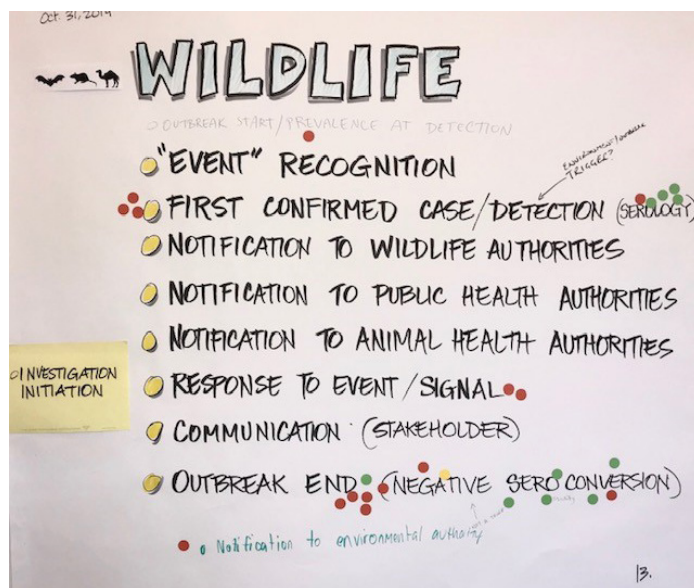 Oct. 31, 2019
WILDLIFE
OUTBREAK START/PREVALENCE AT DETECTION
ENVIRONMENT/OUTBREAK
TRIGGER?
"EVENT" RECOGNITION
FIRST CONFIRMED CASE/DETECTION (SEROLOGY)
NOTIFICATION TO WILDLIFE AUTHORITIES
NOTIFICATION TO PUBLIC HEALTH AUTHORITIES
NOTIFICATION TO ANIMAL HEALTH AUTHORITIES
INVESTIGATION
INITIATION
RESPONSE TO EVENT/SIGNAL
COMMUNICATION (STAKEHOLDER)
OUTBREAK END (NEGATIVE SERO CONVERSION)
Notification to environmental authority
13.